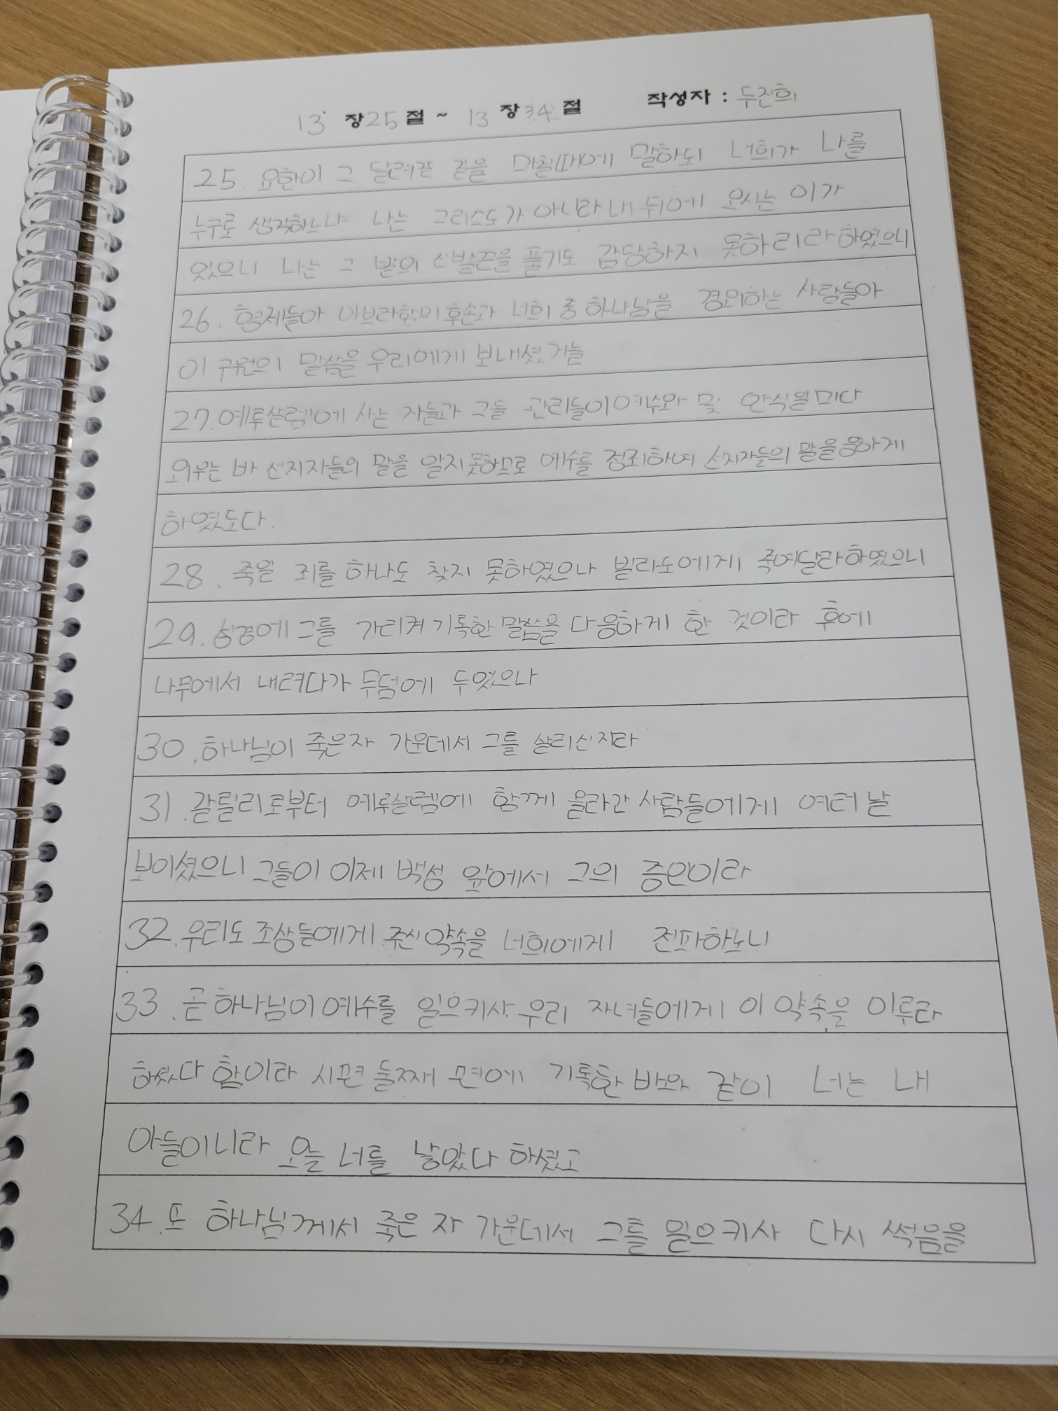 13 장 25 절 ~ 13 장 34 절 작성자 : 두진희
25. 요한이 그 달려갈 길을 마칠때에 말하되 너희가 나를
누구로 생각하느냐 나는 그리스도가 아니라 내 뒤에 오시는 이가
있으니 나는 그 발의 신발끈을 풀기도 감당하지 못하리라 하였으니
26. 형제들아 아브라함의 후손과 너희 중 하나님을 경외하는 사람들아
이 구원의 말씀을 우리에게 보내셨거늘
27. 예루살렘에 사는 자들과 그들 관리들이 예수와 및 안식일마다
외우는 바 선지자들의 말을 알지못하므로 예수를 정죄하여 선지자들의 말을 응하게
하였도다.
28. 죽일 죄를 하나도 찾지 못하였으나 빌라도에게 죽여달라 하였으니
29. 성경에 그를 가리켜 기록한 말씀을 다 응하게 한 것이라 후에
나무에서 내려다가 무덤에 두었으나
30. 하나님이 죽은자 가운데서 그를 살리신지라
31. 갈릴리로부터 예루살렘에 함께 올라간 사람들에게 여러 날
보이셨으니 그들이 이제 백성 앞에서 그의 증인이라
32. 우리도 조상들에게 주신 약속을 너희에게 전파하노니
33. 곧 하나님이 예수를 일으키사 우리 자녀들에게 이 약속을 이루라
하셨다 함이라 시편 둘째 편에 기록한 바와 같이 너는 내
아들이니라 오늘 너를 낳았다 하셨고
34. 또 하나님께서 죽은 자 가운데서 그를 일으키사 다시 썩음을